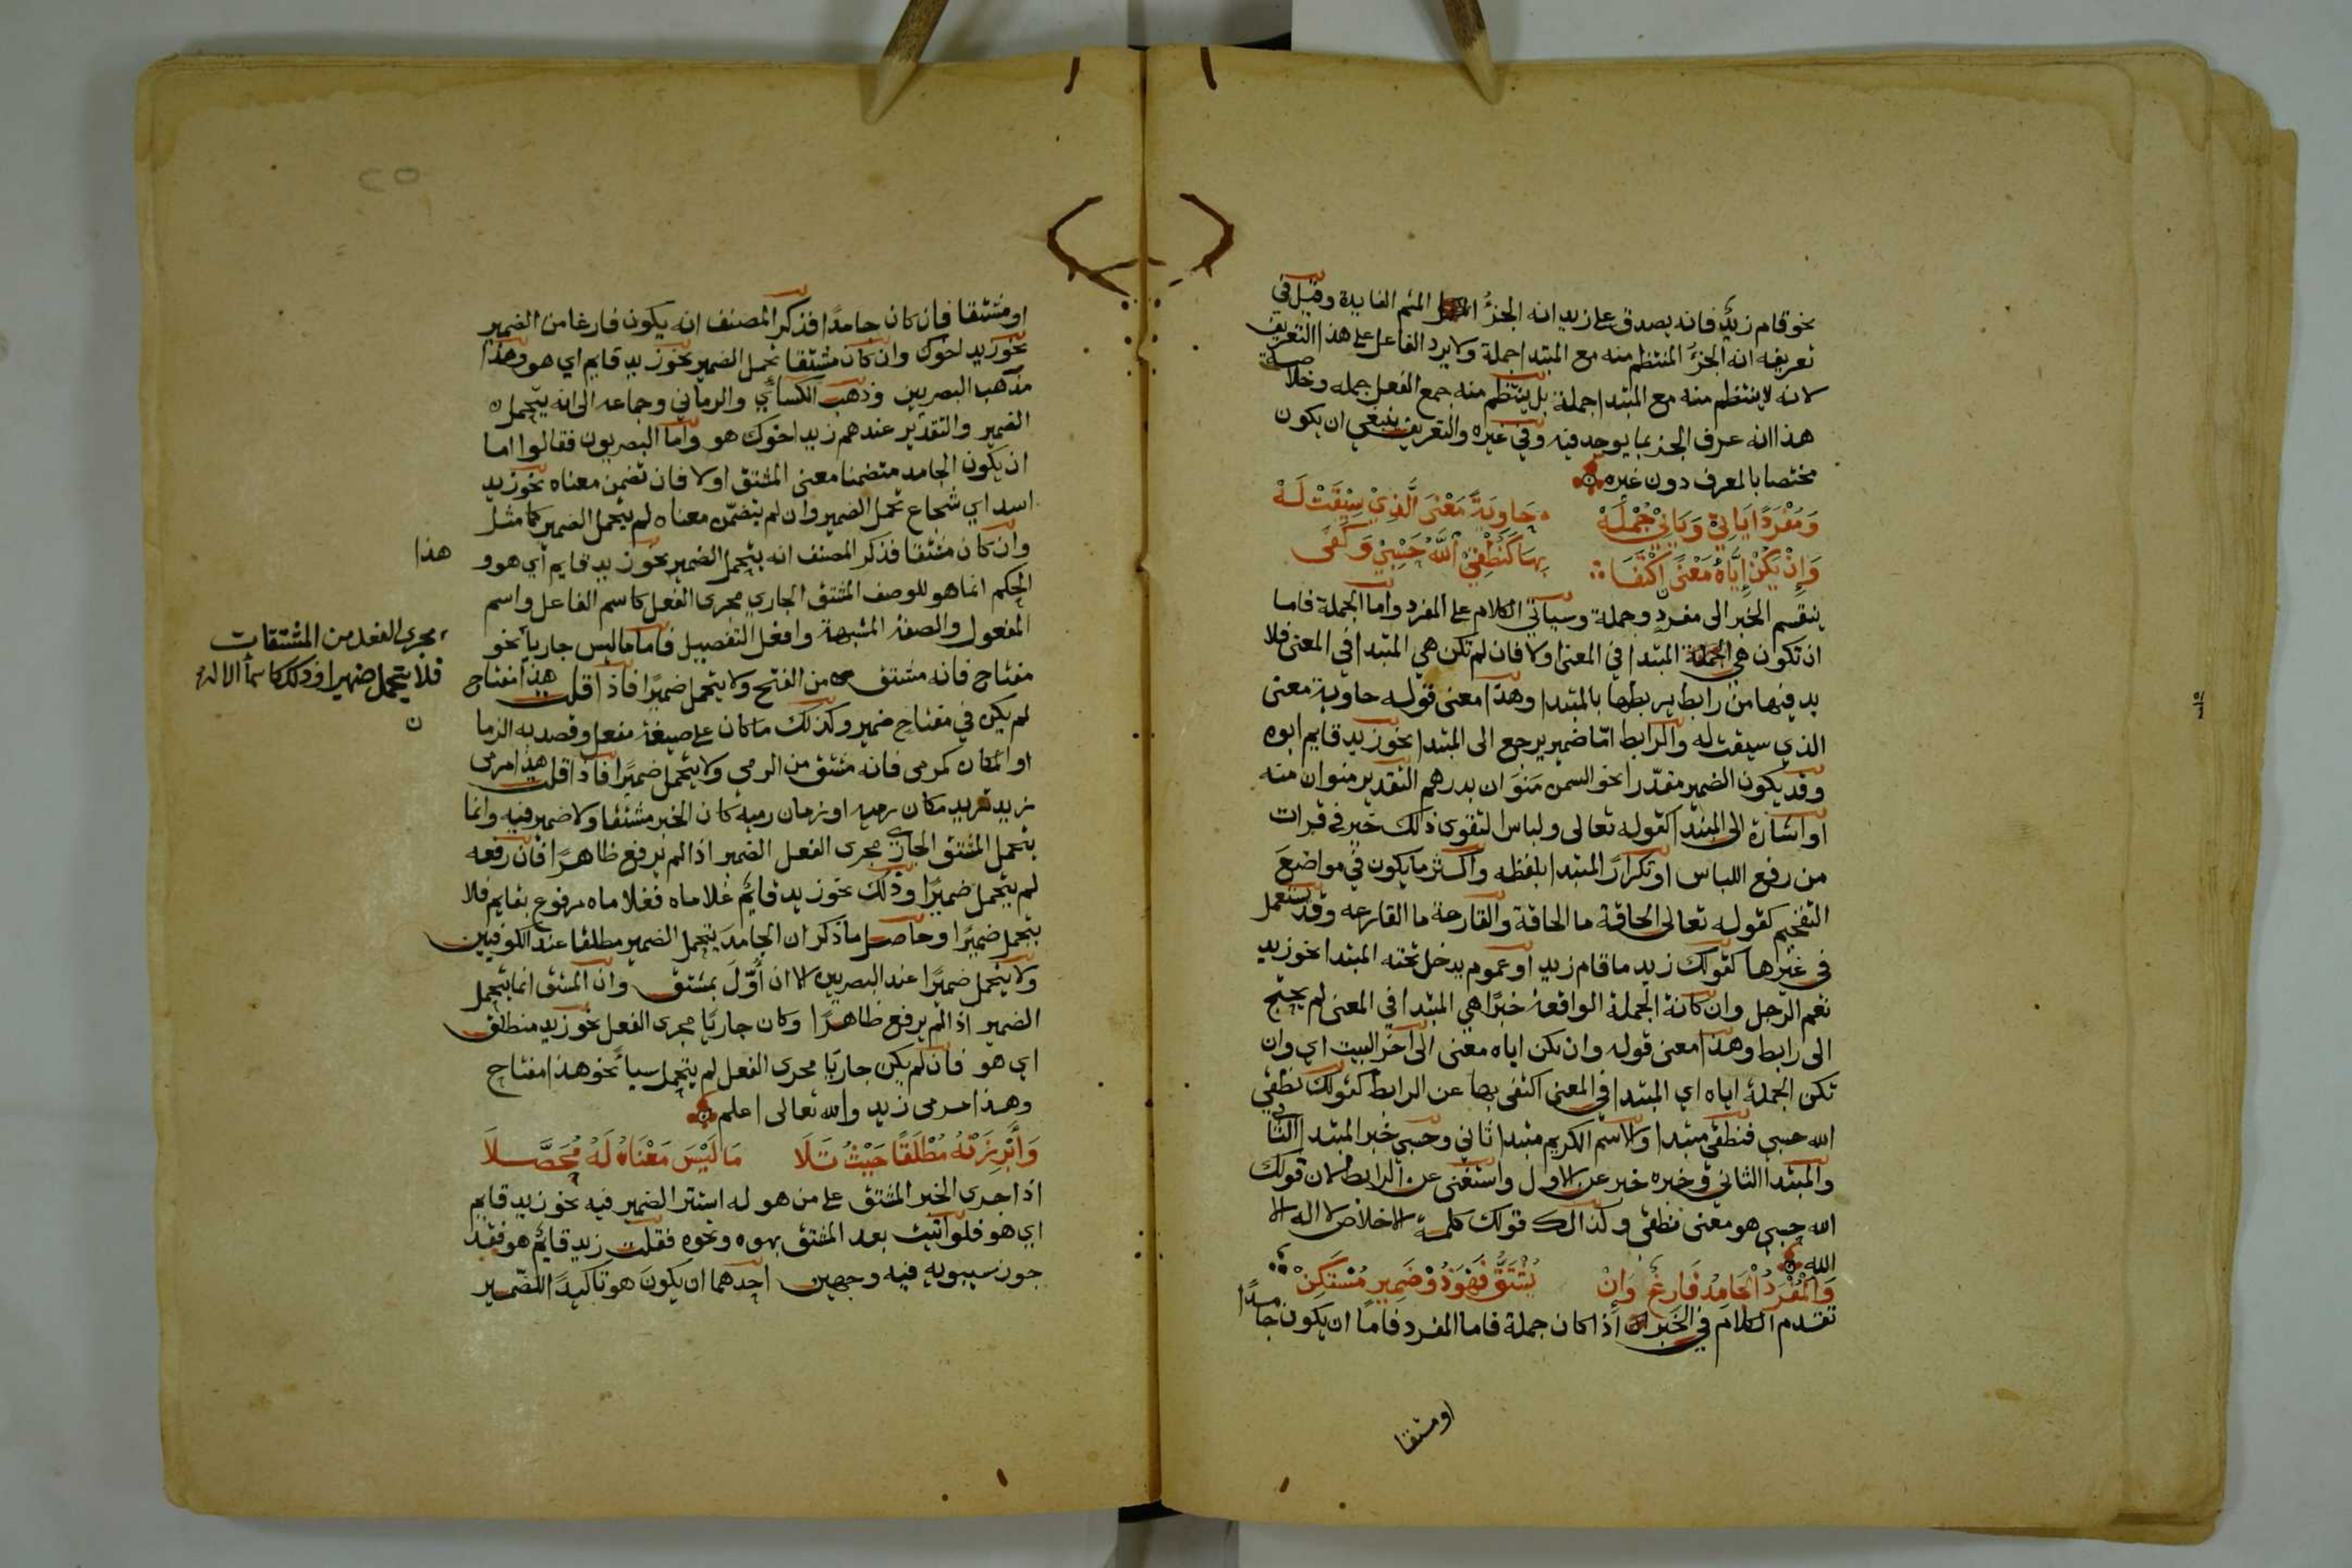 نحو قام زيد فانه يصدق على زيد انه الجزُ المتم الفايدة وقيل في
تعريفه انه الجزُ المنتظم منه مع المبتدا جملة ولا يرد الفاعل على هذا التعريف
لانه لا ينتظم منه مع المبتدا جملة بل ينتظم منه مع الفعل جمله وخلاصة
هذا انه عرف الجز بما يوجد فيه وفي غيره والتعريف ينبغي ان يكون
مختصا بالمعرف دون غيره
وَمُفْرَدًا يَاتِيْ وَيَاتِيْ جُمْلَهْ حَاوِيَةً مَعْنَى الَّذِيْ سِيْقَتْ لَهْ
وَاِنْ تَكُنْ اِيَّاهُ مَعْنًى اكْتَفَا بِهَا كَنُطْقِيْ اللَّهُ حَسْبِيْ وَكَفَى
ينقسم الخبر الى مفرد وجملة وسياتي الكلام على المفرد واما الجملة فاما
ان تكون هي الجملة المبتدا في المعنى اولا فان لم تكن هي المبتدا في المعنى فلا
بد فيها من رابط يربطها بالمبتدا وهذا معنى قوله حاوية معنى
الذي سيقت له والرابط امّا ضمير يرجع الى المبتدا نحو زيد قايم ابوه
وقد يكون الضمير مقدّرا نحو السمن مَنَوَان بدرهم التقدير منوان منه
او اشارة الى المبتدا كقوله تعالى ولباس التقوى ذلك خير في قرات
من رفع اللباس او تكرار المبتدا بلفظه واكثر ما يكون في مواضع
التفخيم كقوله تعالى الحاقة ما الحاقة والقارعة ما القارعه وقد يستعمل
في غيرها كقولك زيد ما قام زيد او عموم يدخل تحته المبتدا نحو زيد
نعم الرجل وان كانة الجملة الواقعة خبرًا هي المبتدا في المعنى لم يحتج
الى رابط وهذا معنى قوله وان تكن اياه معنى الى اخر البيت اي وان
تكن الجملة اياه اي المبتدا في المعنى اكتفى بها عن الرابط كقولك نطقي
الله حسبي فنطقي مبتدا والاسم الكريم مبتدا ثاني وحسبي خبر المبتدا الثاني
والمبتدا الثاني وخبره خبر عن الاول واستغنى عن الرابط لان قولك
الله حسبي هو معنى نطقي وكذالك قولك كلمة الاخلاص لا اله الا
الله
وَالْمُفْرَدُ الْجَامِدُ فَارِغٌ وَاِنْ يُشْتَقَّ فَهْوَ ذُوْ ضَمِيرٍ مُسْتَكِنْ
تقدم الكلام في الخبر اذا كان جملة فاما المفرد فامّا ان يكون جامدًا
او مشتقا
او مشتقا فان كان جامدًا فذكر المصنف انه يكون فارغا من الضمير
نحو زيد اخوك وان كان مشتقا تحمل الضمير نحو زيد قايم اي هو وهذا
مذهب البصريين وذهب الكسائي والرماني وجماعه الى انه يتحمل
الضمير والتقدير عندهم زيد اخوك هو واما البصريون فقالوا اما
ان يكون الجامد متضمنا معنى المشتق اولا فان تضمن معناه نحو زيد
اسد اي شجاع تحمل الضمير وان لم يتضمّن معناه لم يتحمل الضمير كما مثل
وان كان مشتقا فذكر المصنف انه يتحمل الضمير نحو زيد قايم اي هو و هذا
الحكم انما هو للوصف المشتق الجاري مجرى الفعل كاسم الفاعل واسم
المفعول والصفة المشبهة وافعل التفضيل فاما ما ليس جاريا نحو
مجرى الفعل من المشتقات
فلا يتحمل ضميرا وذلك كاسما الاله
مفتاح فانه مشتق من الفتح ولا يتحمل ضميرًا فاذا قلت هذا مفتاح
لم يكن في مفتاح ضمير وكذلك ما كان على صيغة مفعل وقصد به الزما
او المكان كمرمى فانه مشتق من الرمي ولا يتحمل ضميرًا فاذا قلت هذا مرمى
زيد تريد مكان رميه او زمان رميه كان الخبر مشتقا ولا ضمير فيه وانما
يتحمل المشتق الجاري مجرى الفعل الضمير اذا لم يرفع ظاهرًا فان رفعه
لم يتحمل ضميرًا وذلك نحو زيد قائم غلاماه فغلاماه مرفوع بقايم فلا
يتحمل ضميرًا وحاصل ما ذكر ان الجامد يتحمل الضمير مطلقا عند الكوفيين
ولا يتحمل ضميرًا عند البصريين الا ان اُوّلَ بمشتق وان المشتق انما يتحمل
الضمير اذا لم يرفع ظاهرًا وكان جاريًا مجرى الفعل نحو زيد منطلق
اي هو فان لم يكن جاريًا مجرى الفعل لم يتحمل سيأ نحو هذا مفتاح
وهذا مرمى زيد والله تعالى اعلم
وَاَبْرِزَنْهُ مُطْلَقًا حَيْثُ تَلَا مَا لَيْسَ مَعْنَاهُ لَهُ مُحَصَّلَا
اذا جرى الخبر المشتق على من هو له استتر الضمير فيه نحو زيد قايم
اي هو فلو اتيت بعد المشتق بهو ونحوه فقلت زيد قايم هو فقد
جوز سيبويه فيه وجهين احدهما ان يكون هو تاكيدًا للضمير